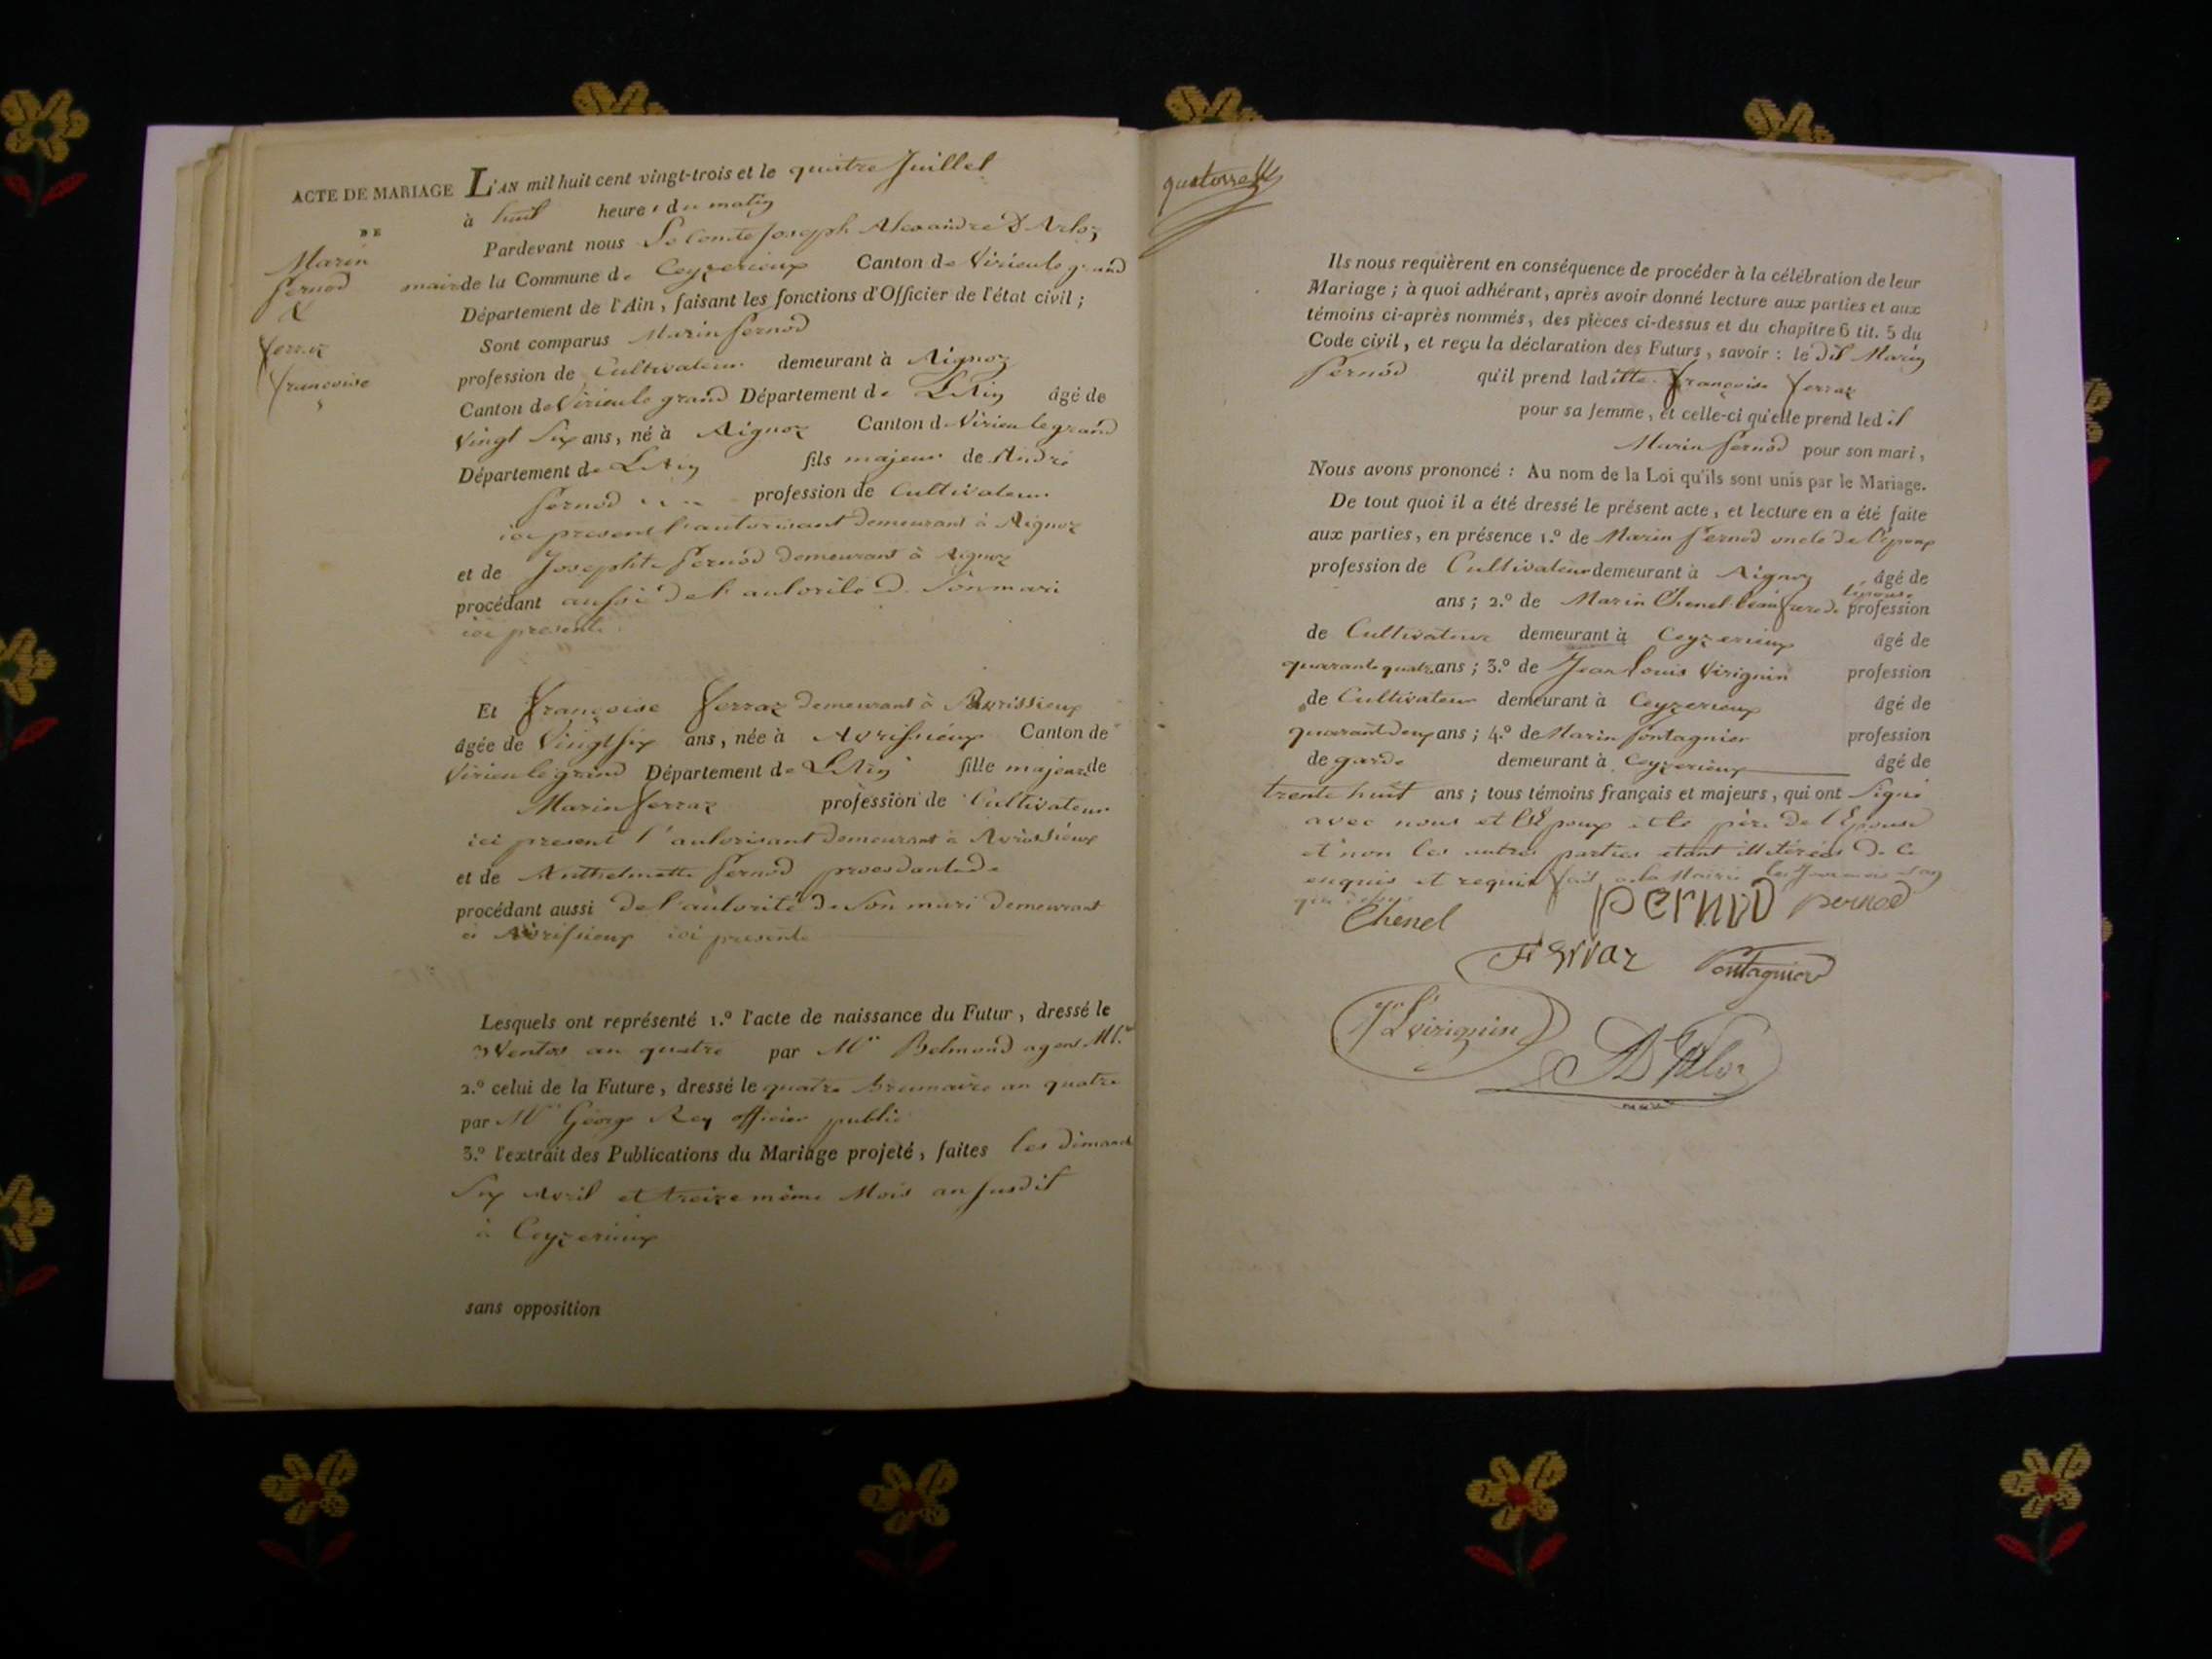 ACTE DE MARIAGE
DE
Marin
Pernod
&
ferraz
françoise
L'AN mil huit cent vingt-trois et le quatre Juillet
à huit heures du matin
Pardevant nous Le Comte Joseph Alexandre D'Arloz
maire de la Commune de Ceyzerieux Canton de Virieu le grand
Département de l'Ain, faisant les fonctions d'Officier de l'état civil;
Sont comparus Marin Pernod
profession de Cultivateur demeurant à Aignoz
Canton de Virieu le grand Département de L'Ain âgé de
Vingt Six ans, né à Aignoz Canton de Virieu le grand
Département de L'Ain fils majeur de André
Pernod profession de Cultivateur
ici present l'autorisant demeurant à Aignoz
et de Josephte Pernod demeurant à Aignoz
procédant aussi de l'autorité de Son mari
ici presente
Et françoise ferraz demeurant à Avrissieux
âgée de Vingt Six ans, née à Avrissieux Canton de
Virieu le grand Département de L'Ain fille majeure de
Marin ferraz profession de Cultivateur
ici present l'autorisant demeurant à Avrissieux
et de Anthelmette Pernod procedante de
procédant aussi de l'autorité de Son mari demeurant
à Avrissieux ici presente
Lesquels ont représenté 1.º l'acte de naissance du Futur, dressé le
Ventos an quatre par Mr Belmond agent
2.º celui de la Future, dressé le quatre brumaire an quatre
par Mr George Rey officier public
3.º l'extrait des Publications du Mariage projeté, faites les dimanche
Six Avril et treize même Mois an susdit
à Ceyzerieux
sans opposition
quatorze
Ils nous requièrent en conséquence de procéder à la célébration de leur
Mariage; à quoi adhérant, après avoir donné lecture aux parties et aux
témoins ci-après nommés, des pièces ci-dessus et du chapitre 6 tit. 5 du
Code civil, et reçu la déclaration des Futurs, savoir: le dit Marin
Pernod qu'il prend laditte françoise ferraz
pour sa femme, et celle-ci qu'elle prend ledit
Marin Pernod pour son mari,
Nous avons prononcé: Au nom de la Loi qu'ils sont unis par le Mariage.
De tout quoi il a été dressé le présent acte, et lecture en a été faite
aux parties, en présence 1.º de Marin Pernod oncle de l'epoux
profession de Cultivateur demeurant à Aignoz âgé de
ans; 2.º de Marin Chenel beau frere de l'épouse profession
de Cultivateur demeurant à Ceyzerieux âgé de
quarante quatre ans; 3.º de Jean Louis Virignin profession
de Cultivateur demeurant à Ceyzerieux âgé de
quarant deux ans; 4.º de Marin Pontagnier profession
de garde demeurant à Ceyzerieux âgé de
trente huit ans; tous témoins français et majeurs, qui ont Signé
avec nous et l'Epoux et le père de l'Epouse
et non les autres parties etant illitérées de ce
enquis et requis fait à la Mairie les Jour mois et an
que dessus
Chenel
pernod pernod
Ferraz Pontagnier
Jn Ls virignin
D'Arloz